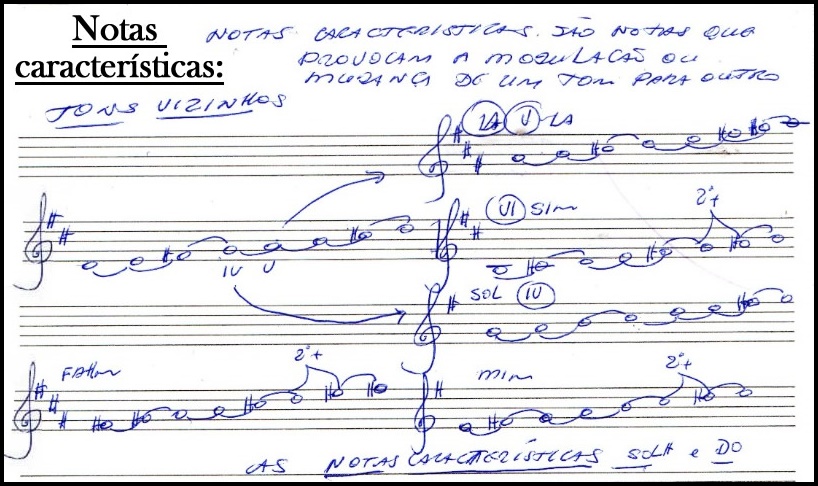 Notas
características:
NOTAS CARACTERISTICAS SÃO NOTAS QUE
PROVOCAM A MODULAÇÃO OU
MUDANÇA DE UM TOM PARA OUTRO
TONS VIZINHOS
LA V LA
VI SIm 2ª+
IV V
SOL IV
FA#m 2ª+
MIm 2ª+
AS NOTAS CARACTERÍSTICAS SOL# e DO